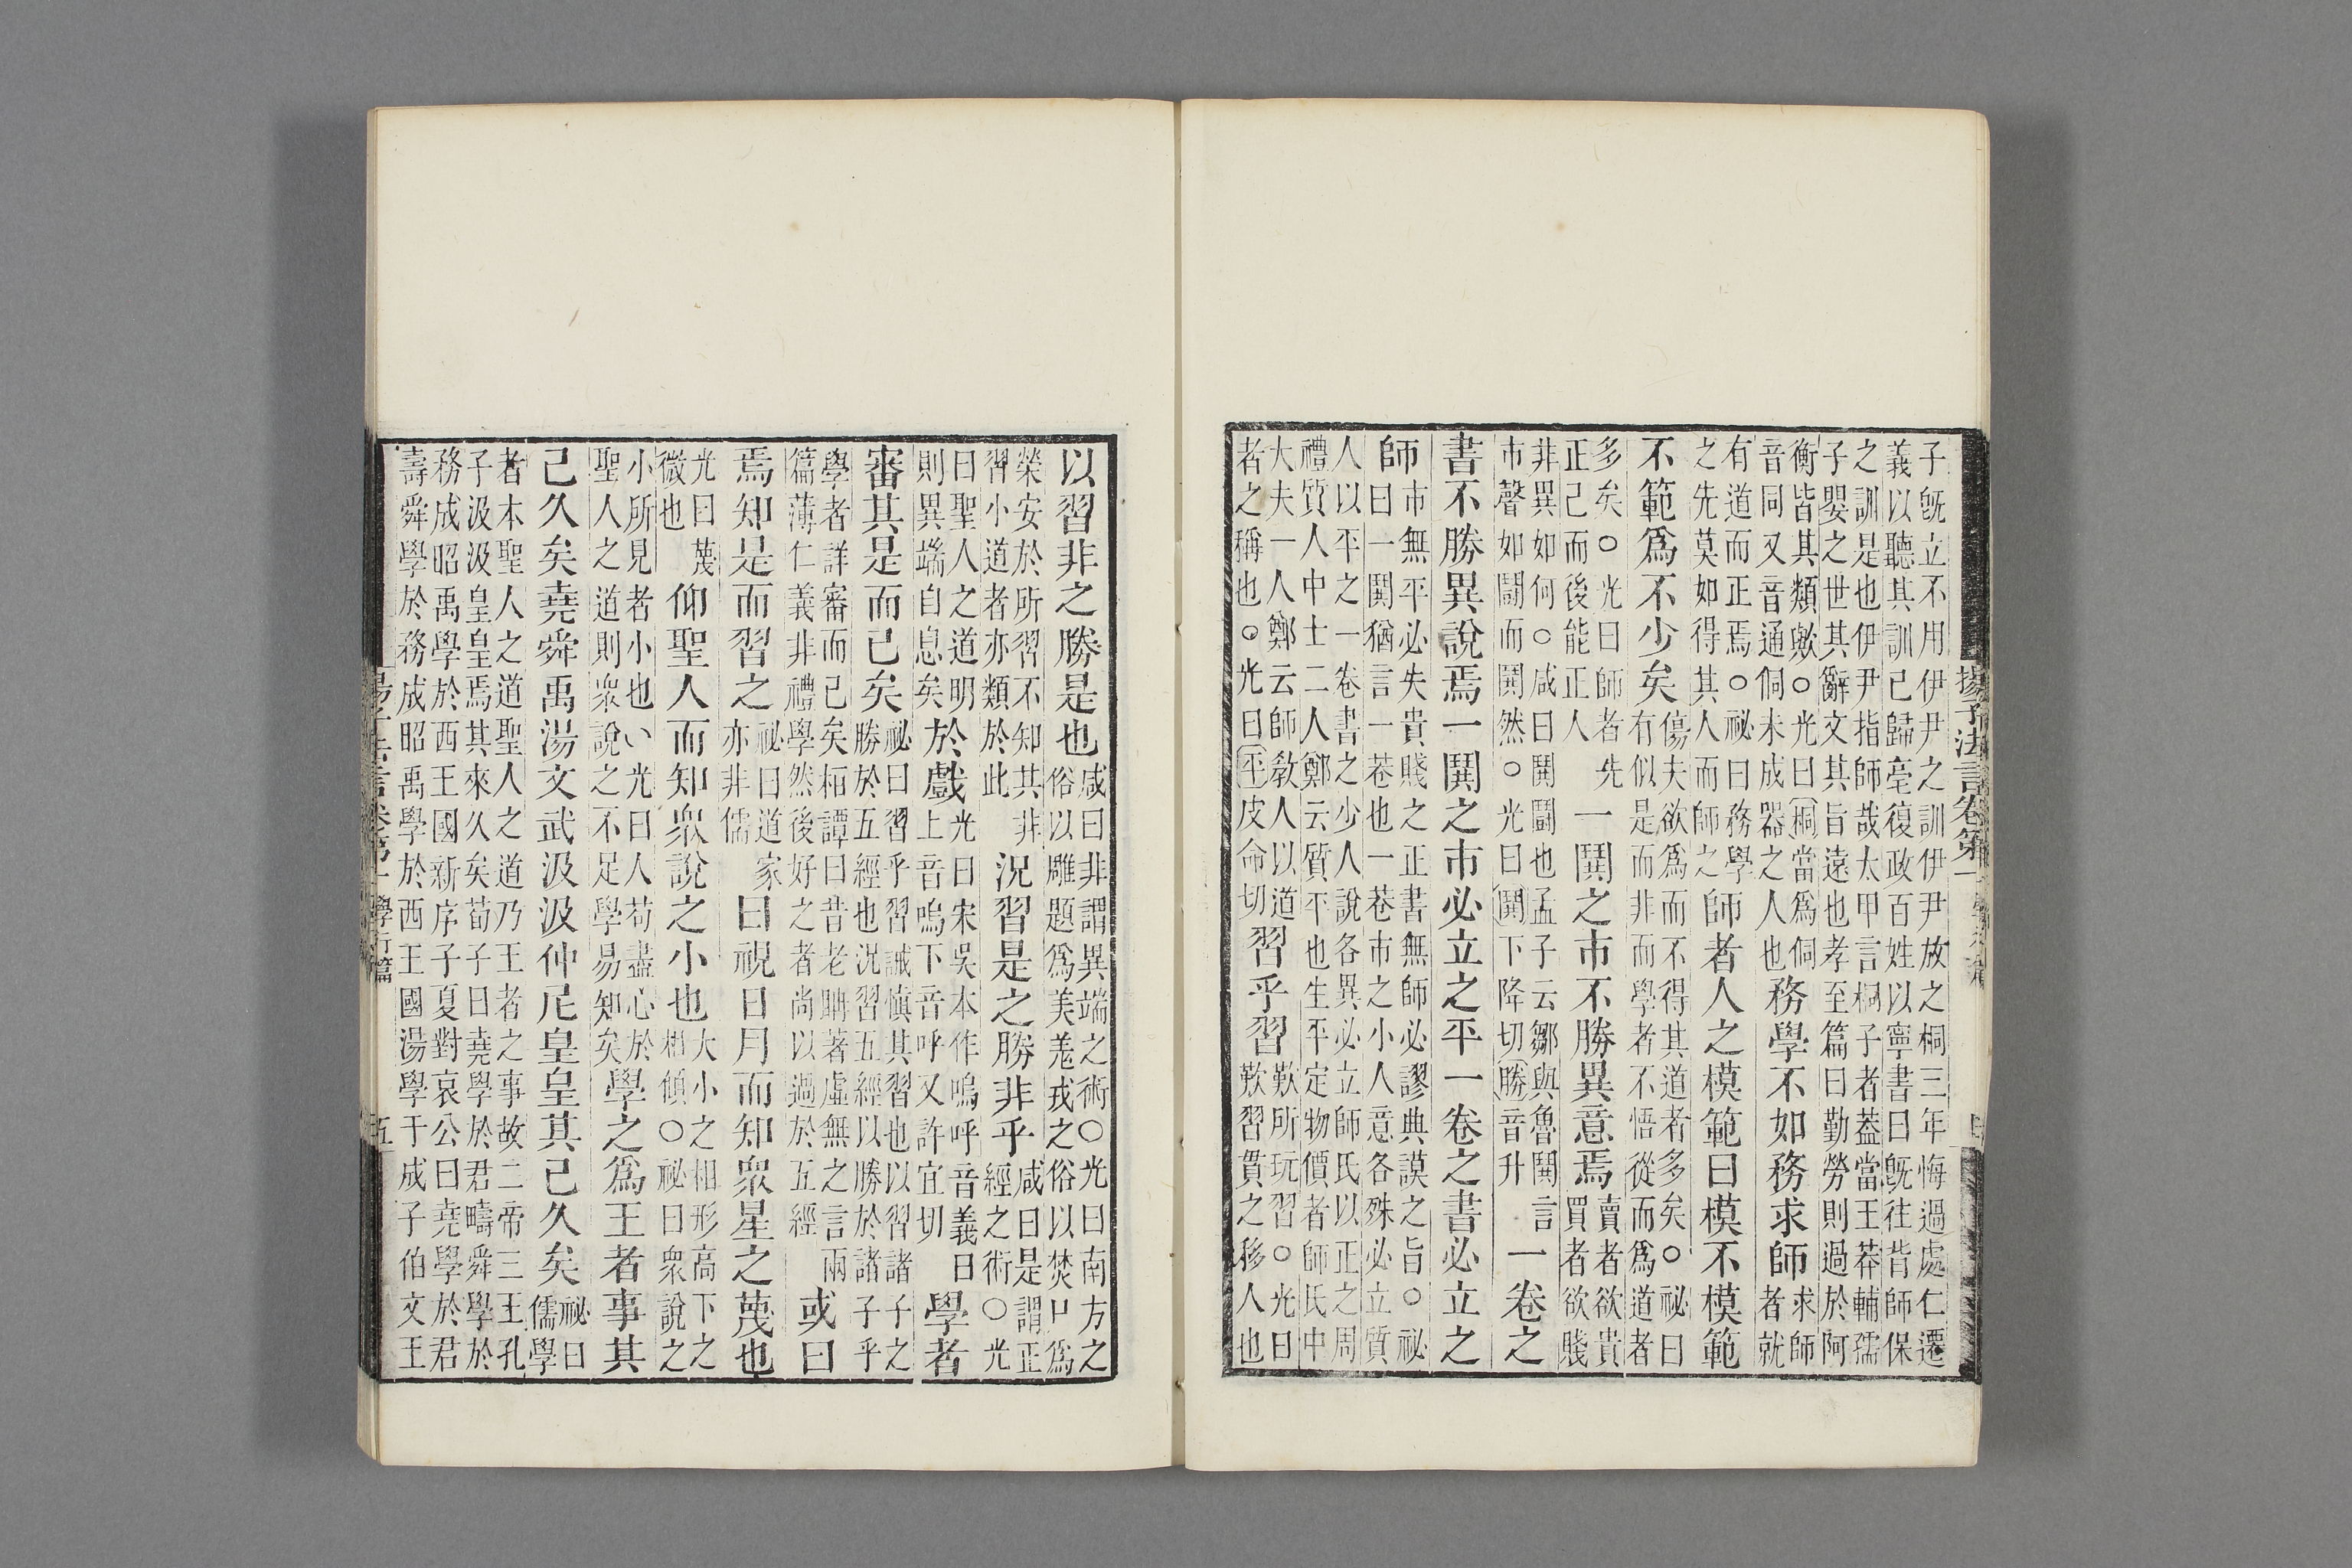 揚子法言卷第一
子旣立不用伊尹之訓伊尹放之桐三年悔過處仁遷
義以聽其訓己歸亳復政百姓以寧書曰旣往背師保
之訓是也伊尹指師哉太甲言桐子者蓋當王莽輔孺
子嬰之世其辭文其旨遠也孝至篇曰勤勞則過於阿
衡皆其類歟○光曰桐當爲侗音同又音通侗未成器之人也務學不如務求師求師者就
有道而正焉○祕曰務學之先莫如得其人而師之師者人之模範曰模不模範
不範爲不少矣傷夫欲爲而不得其道者多矣○祕曰有似是而非而學者不悟從而爲道者
多矣○光曰師者先正己而後能正人一閧之市不勝異意焉賣者欲貴買者欲賤
非異如何○咸曰閧鬭也孟子云鄒與魯閧言市聲如鬭而閧然○光曰閧下降切勝音升一卷之
書不勝異說焉一閧之市必立之平一卷之書必立之
師市無平必失貴賤之正書無師必謬典謨之旨○祕曰一閧猶言一巷也一巷市之小人意各殊必立質
人以平之一卷書之少人說各異必立師氏以正之周
禮質人中士二人鄭云質平也生平定物價者師氏中
大夫一人鄭云師敎人以道者之稱也○光曰平皮命切習乎習歎所玩習○光曰歎習貫之移人也
以習非之勝是也咸曰非謂異端之術○光曰南方之俗以雕題爲美羗戎之俗以焚尸爲
榮安於所習不知其非習小道者亦類於此況習是之勝非乎咸曰是謂正經之術○光
曰聖人之道明則異端自息矣於戲光曰宋吳本作嗚呼音義曰上音嗚下音呼又許宜切學者
審其是而已矣祕曰習乎學習誡慎其習也以習諸子之勝於五經也況習五經以勝於諸子乎
學者詳審而已矣桓譚曰昔老聃著虛無之言兩篇薄仁義非禮學然後好之者尚以過於五經或曰
焉知是而習之祕曰道家亦非儒曰視日月而知衆星之蔑也
光曰蔑微也仰聖人而知衆說之小也大小之相形高下之相傾○祕曰衆說之
小所見者小也○光曰人苟盡心於聖人之道則衆說之不足學易知矣學之爲王者事其
已久矣堯舜禹湯文武汲汲仲尼皇皇其已久矣祕曰儒學
者本聖人之道聖人之道乃王者之事故二帝三王孔
子汲汲皇皇焉其來久矣荀子曰堯學於君疇舜學於
務成昭禹學於西王國新序子夏對哀公曰堯學於君
壽舜學於務成昭禹學於西王國湯學于成子伯文王
學行篇
五